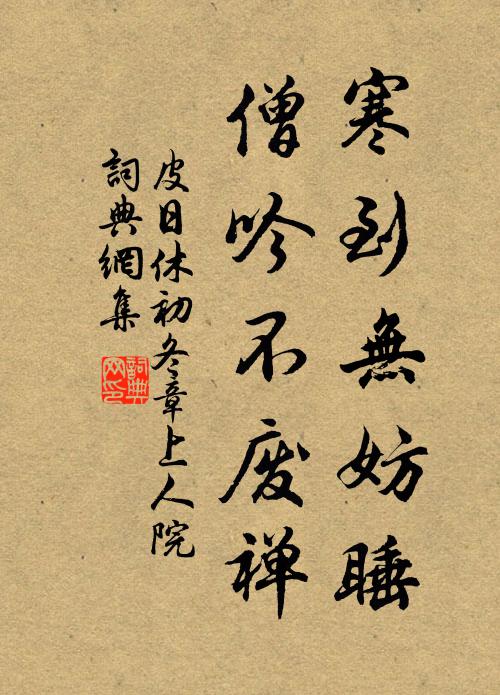 寒到無妨睡
僧吟不废禅
皮日休初冬章上人院
詞典網集
詞典
网印